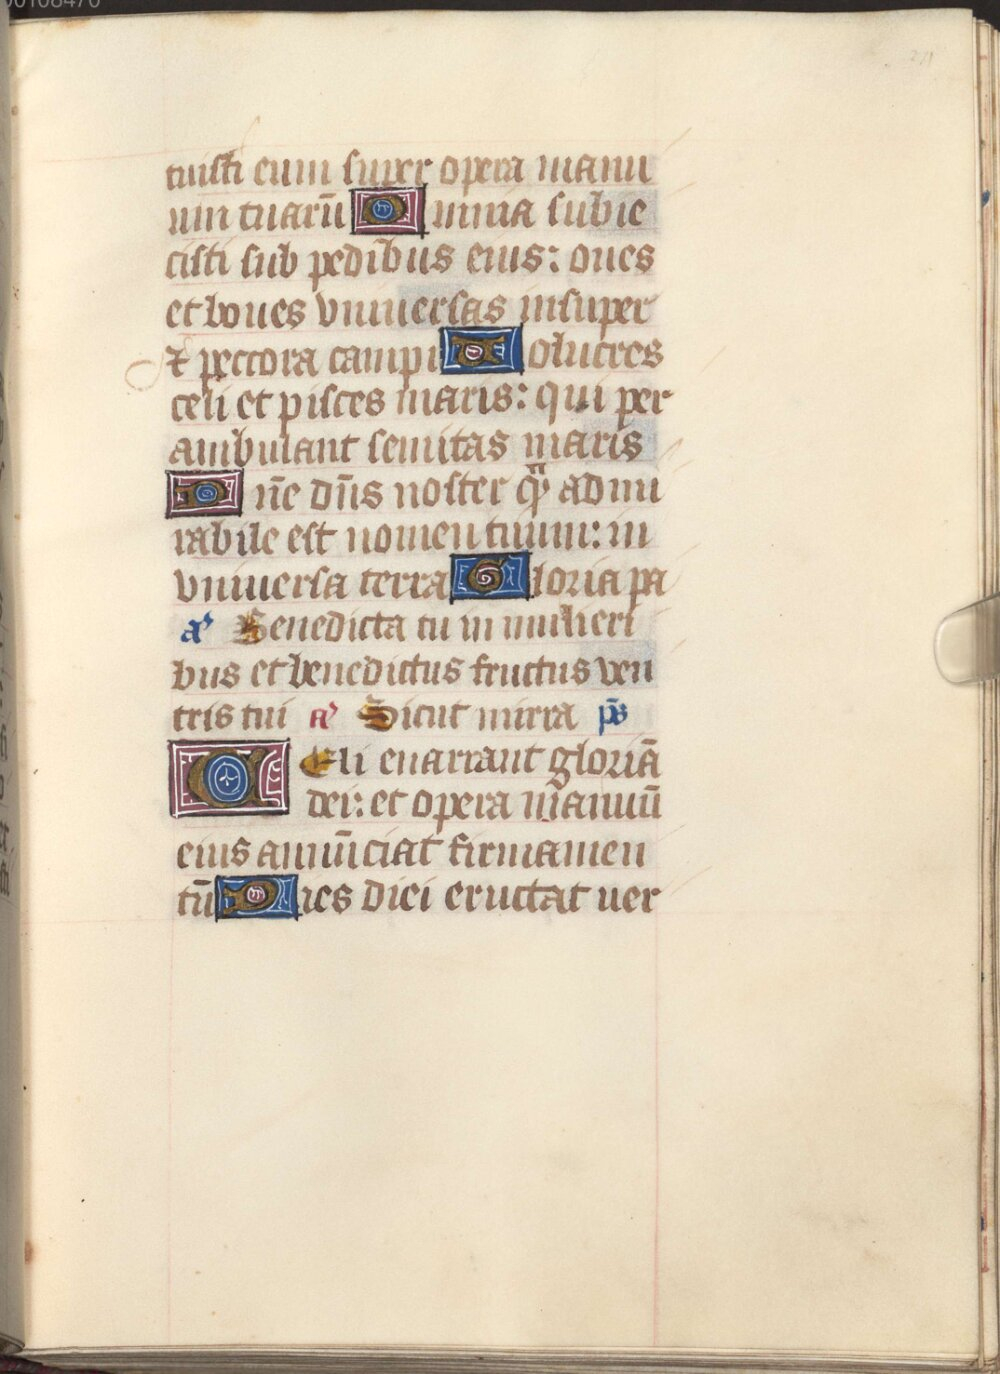 tuisti eum super opera manu
um tuarū Omnia subie
cisti sub pedibus eius: oues
et boues vniuersas insuper
⁊ peccora campi Volucres
celi et pisces maris: qui per
ambulant semitas maris
Dn̄e dn̄s noster q̄ admi
rabile est nomen tuum: in
vniuersa terra Gloria pa
a᷒ Benedicta tu in mulieri
bus et benedictus fructus ven
tris tui a᷒ Sicut mirra p̄s
CEli enarrant gloriā
dei: et opera manuū
eius annūciat firmamen
tū Dies diei eructat uer